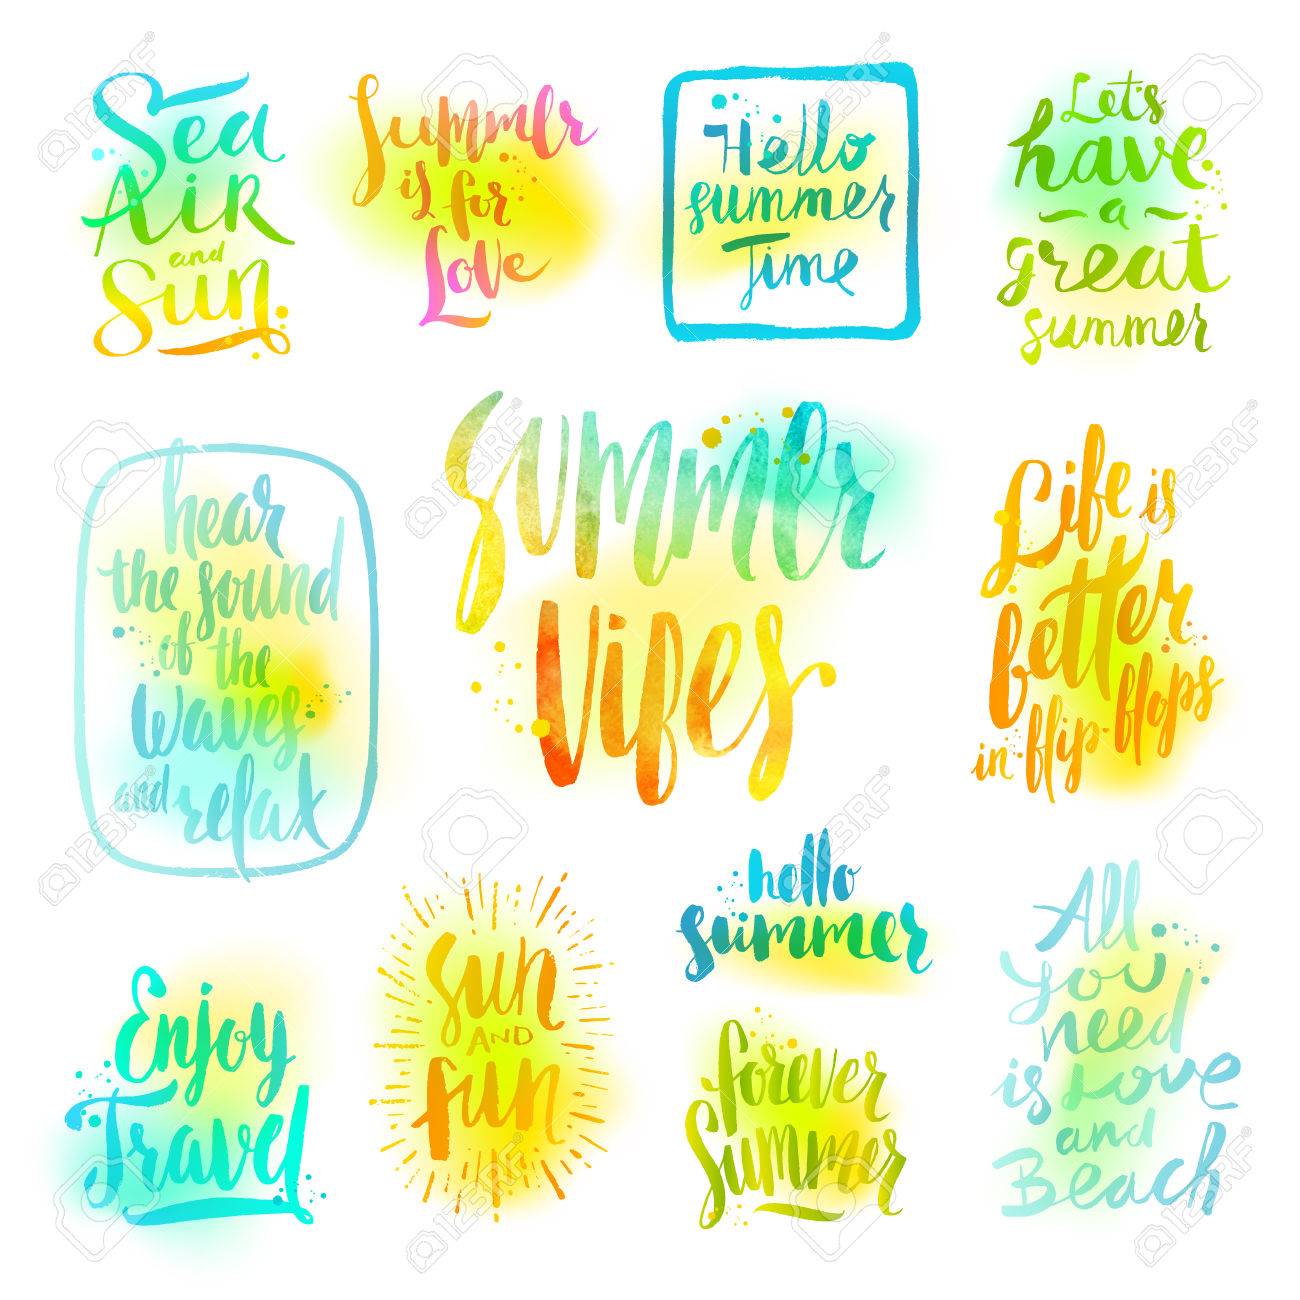 Sea
AiR
and
Sun
Summer
is for
Love
Hello
summer
Time
Let's
have
a
great
summer
hear
the sound
of the
waves
and relax
Summer
Vibes
Life is
better
in flip-flops
hello
summer
Enjoy
Travel
Sun
AND
fun
forever
Summer
All
you
need
is Love
and
Beach
123RF